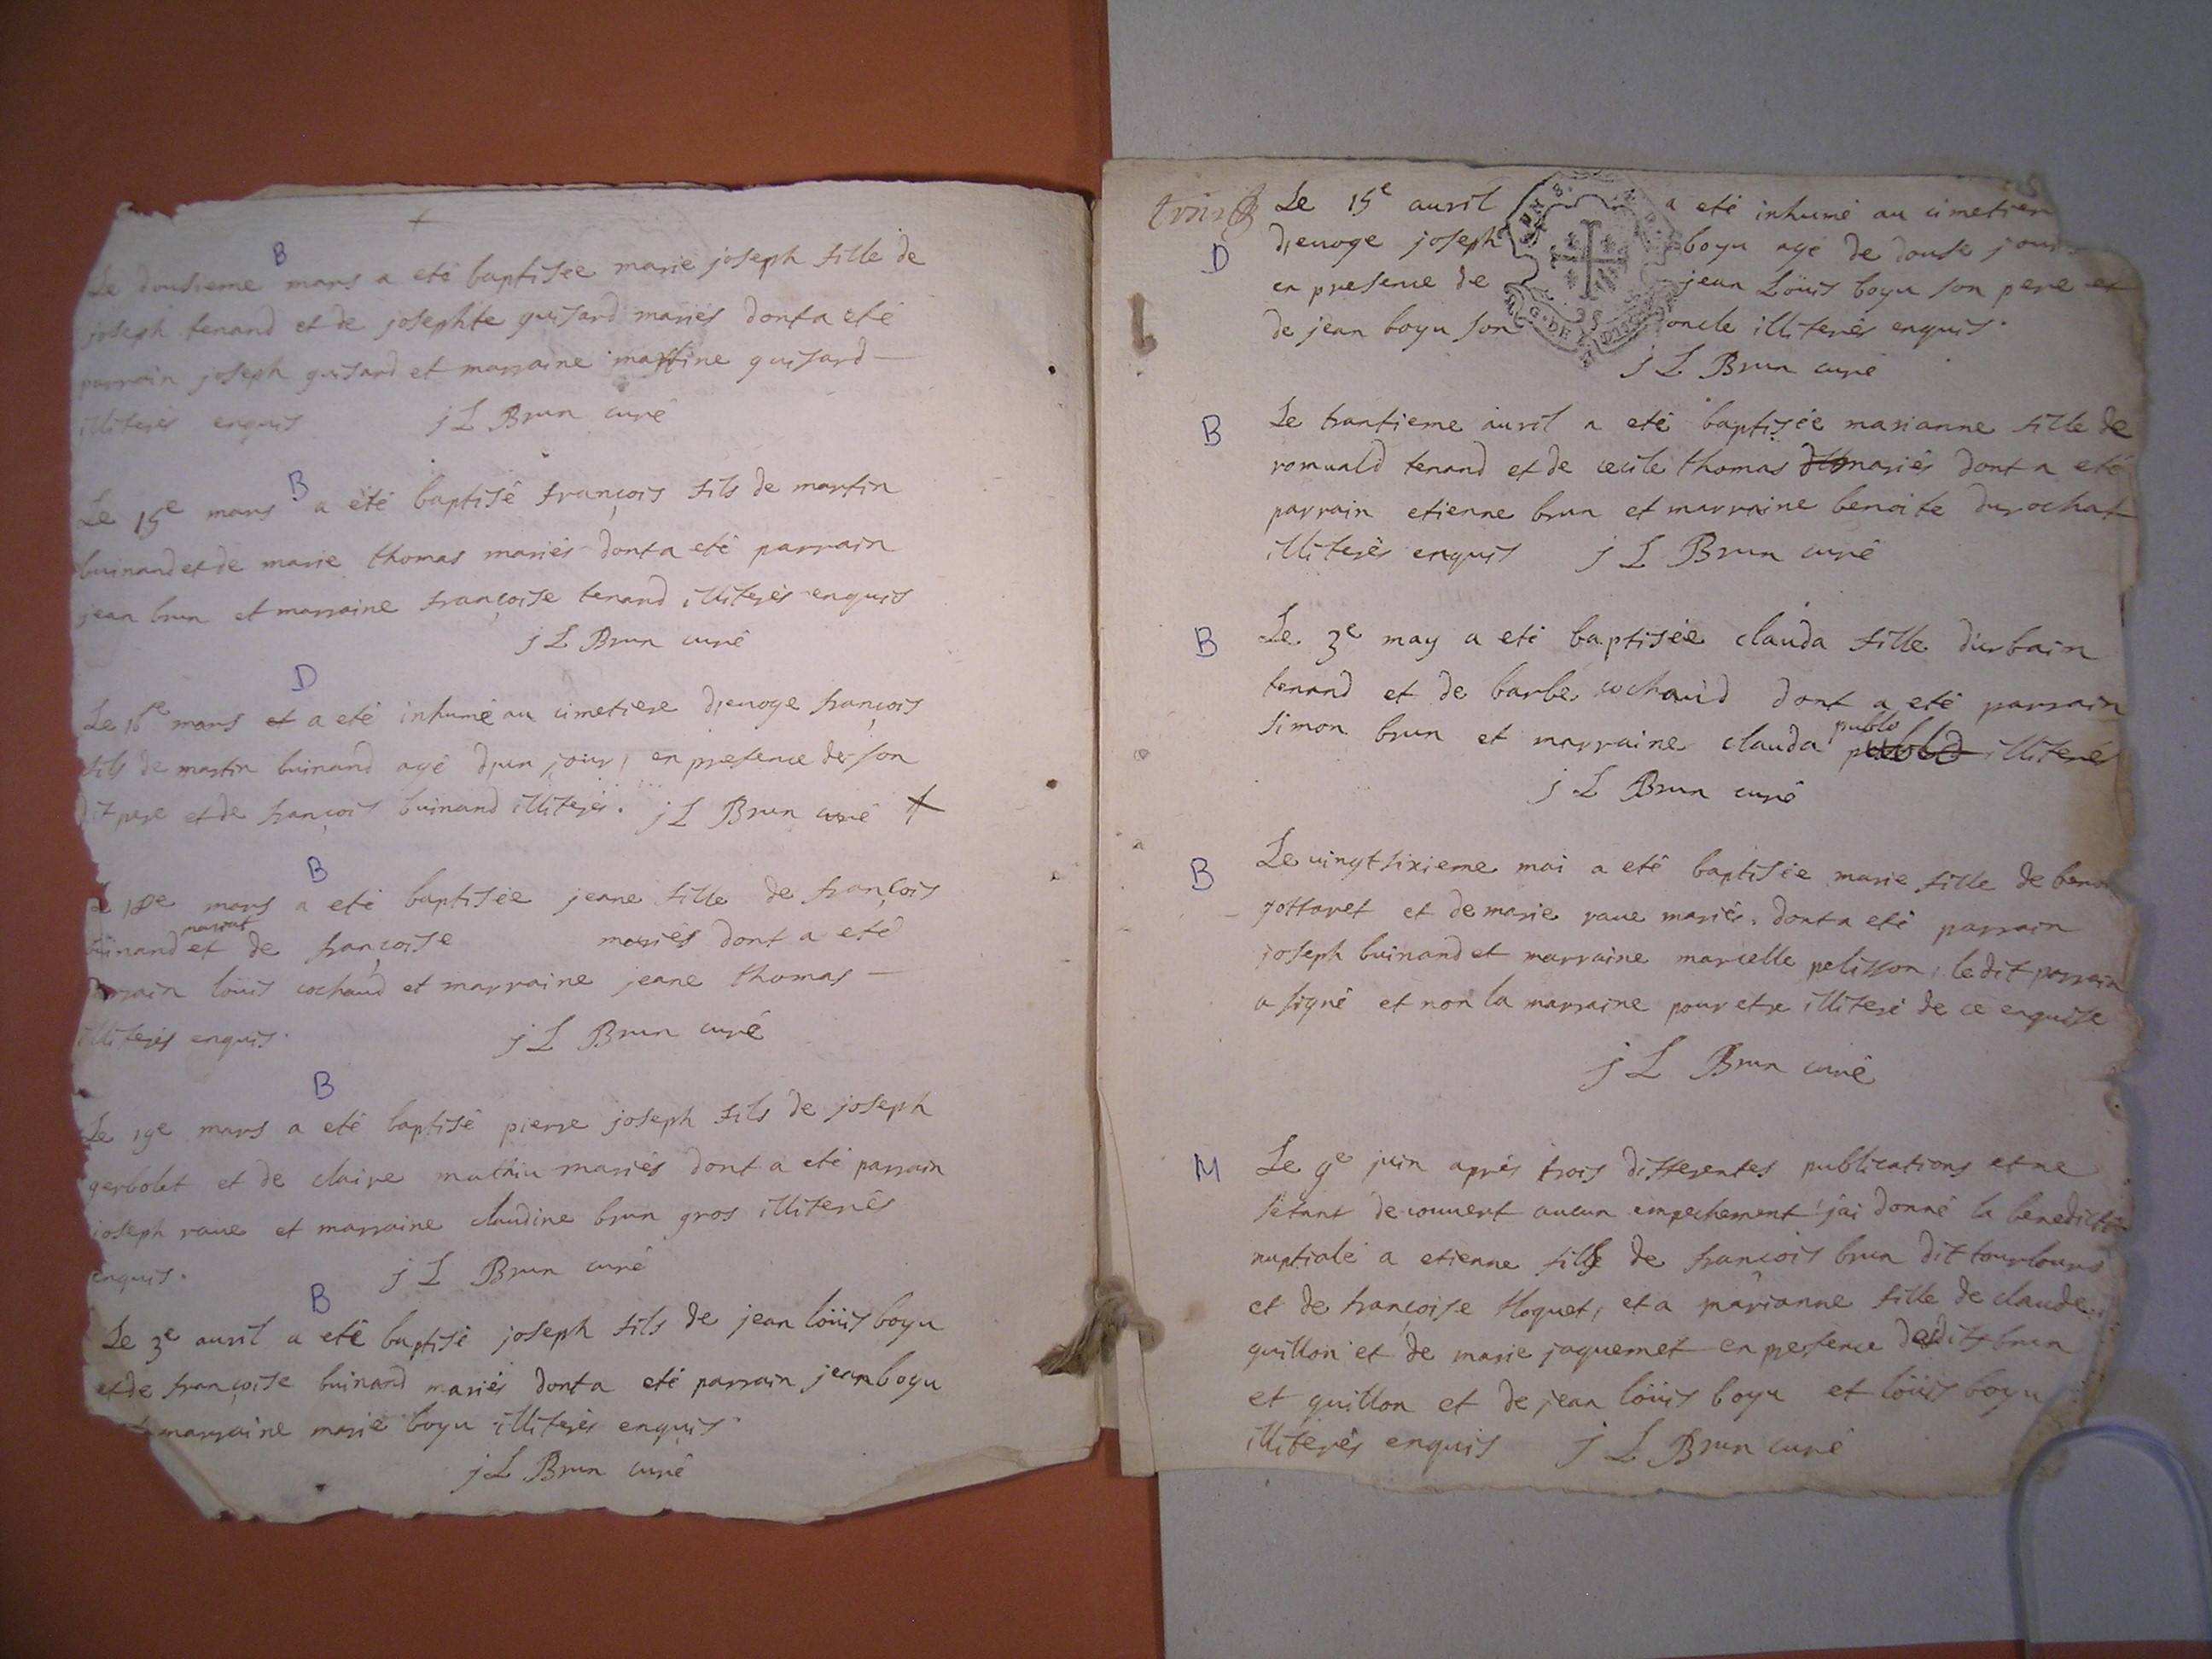 B
Le dousieme mars a eté baptisée marie joseph fille de
joseph tenand et de josephte guisard mariés dont a eté
parrain joseph guisard et marraine martine guisard
illiterés enquis j L Brun curé
B
Le 15e mars a été baptisé françois fils de martin
buinand et de marie thomas mariés dont a eté parrain
jean brun et marraine françoise tenand illiterés enquis
j L Brun curé
D
Le 16e mars et a eté inhumé au cimetiere d'ieuoge françois
fils de martin buinand agé d'un jour, en presence de son
dit pere et de françois buinand illiterés. j L Brun curé
B
Le 18e mars a eté baptisée jeane fille de françois
buinand et de françoise mariés dont a eté
parrain loüis cochaud et marraine jeane thomas
illiterés enquis. j L Brun curé
B
Le 19e mars a eté baptisé pierre joseph fils de joseph
gerbolet et de claire mathiu mariés dont a eté parrain
joseph raue et marraine claudine brun gros illiterés
enquis. j L Brun curé
B
Le 3e auril a eté baptisé joseph fils de jean loüis boyu
et de françoise buinand mariés dont a eté parrain jean boyu
et marraine marie boyu illiterés enquis
j L Brun curé
D
Le 15e auril a eté inhumé au cimetiere
d'ieuoge joseph boyu agé de douse jours
en presence de jean Loüis boyu son pere et
de jean boyu son oncle illiterés enquis.
j L Brun curé
B
Le trantieme auril a eté baptisée marianne fille de
romuald tenand et de cecile thomas mariés dont a eté
parrain etienne brun et marraine benoite durochat
illiterés enquis j L Brun curé
B
Le 3e may a eté baptisée clauda fille d'urbain
tenand et de barbe cochaud dont a eté parrain
simon brun et marraine clauda publo illiterés
j L Brun curé
B
Le vingt sixieme mai a eté baptisée marie fille de benoi
gottaret et de marie raue mariés. dont a eté parrain
joseph buinand et marraine marcelle pelisson, le dit parrain
a signé et non la marraine pour etre illiteré de ce enquise
j L Brun curé
M
Le 9e juin aprés trois differentes publications et ne
s'etant decouuert aucun empechement j'ai donné la benediction
nuptiale a etienne fils de françois brun dit tourlours
et de françoise floquet, et a marianne fille de claude
guillon et de marie jaquemet en presence desdits brun
et guillon et de jean loüis boyu et loüis boyu
illiterés enquis j L Brun curé